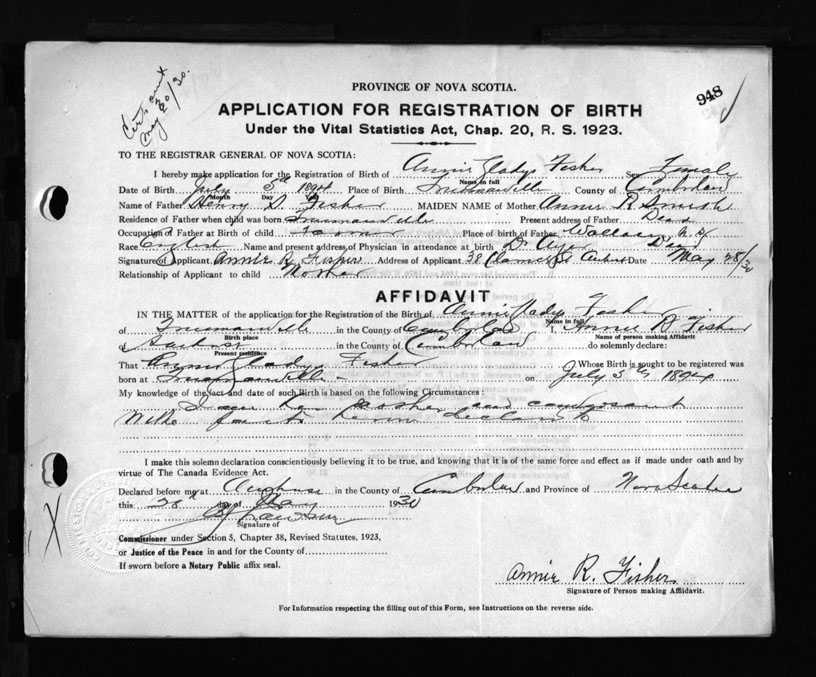 948
May 20/30.
PROVINCE OF NOVA SCOTIA.
APPLICATION FOR REGISTRATION OF BIRTH
Under the Vital Statistics Act, Chap. 20, R. S. 1923.
TO THE REGISTRAR GENERAL OF NOVA SCOTIA:
I hereby make application for the Registration of Birth of Annie Gladys Fisher Sex Female
Name in full
Date of Birth July 5th 1894 Place of Birth Truemanville County of Cumberland
Month Day
Name of Father Henry D. Fisher MAIDEN NAME of Mother Annie R Smith
Residence of Father when child was born Truemanville Present address of Father Dead
Occupation of Father at Birth of child Farmer Place of birth of Father Wallace N.S
Race English Name and present address of Physician in attendance at birth Dr Dead
Signature of Applicant Annie R Fisher Address of Applicant 38 St Amherst Date May 28/30
Relationship of Applicant to child Mother
AFFIDAVIT
IN THE MATTER of the application for the Registration of the Birth of Annie Gladys Fisher
Name in full
of Truemanville in the County of Cumberland I, Annie R Fisher
Birth place Name of person making Affidavit
of Amherst in the County of Cumberland do solemnly declare:
Present residence
That Annie Gladys Fisher Whose Birth is sought to be registered was
born at Truemanville on July 5th 1894
My knowledge of the fact and date of such Birth is based on the following Circumstances:
I am her mother and
with facts herein declared
I make this solemn declaration conscientiously believing it to be true, and knowing that it is of the same force and effect as if made under oath and by
virtue of The Canada Evidence Act.
Declared before me at Amherst in the County of Cumberland and Province of Nova Scotia
this 28th day of May 1930
Signature of
Commissioner under Section 5, Chapter 38, Revised Statutes, 1923,
or Justice of the Peace in and for the County of
If sworn before a Notary Public affix seal.
Annie R. Fisher
Signature of Person making Affidavit.
For Information respecting the filling out of this Form, see Instructions on the reverse side.